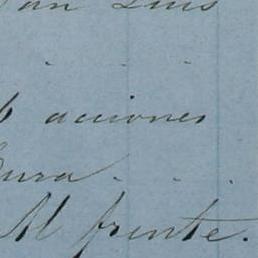 San Luis
6 acciones
Al frente.